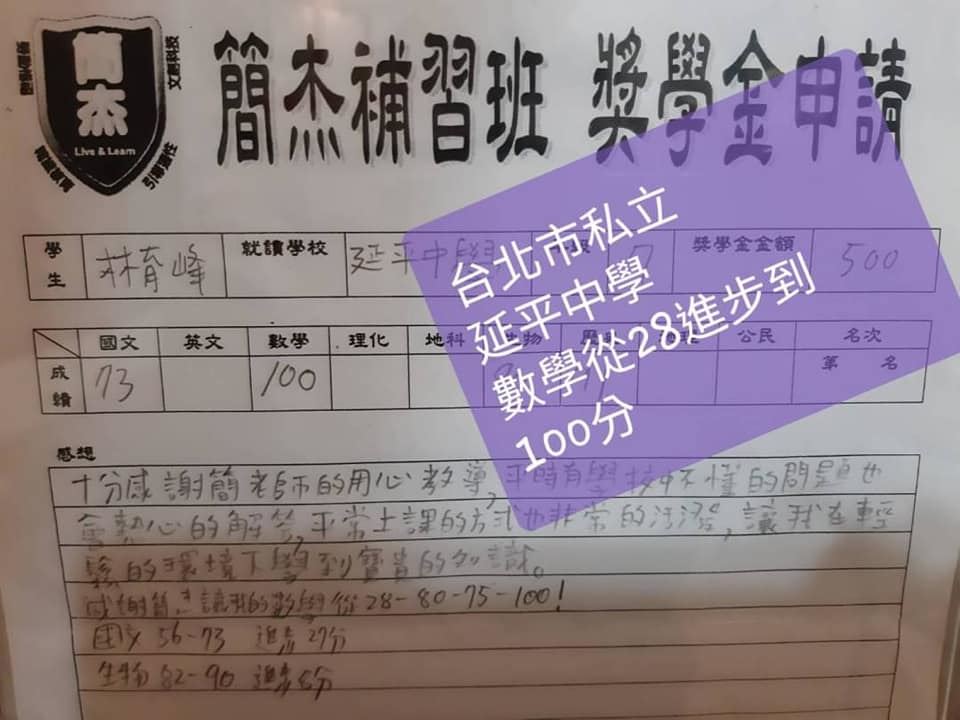 簡杰
Live & Learn
引導適性
簡杰補習班 獎學金申請
學生 林育峰 就讀學校 延平中學 7 獎學金金額 500
國文 英文 數學 理化 地科 公民 名次
成績 73 100 第 名
台北市私立
延平中學
數學從28進步到
100分
感想
十分感謝簡老師的用心教導,平時有學校中不懂的問題也
會熱心的解答,平常上課的方式也非常的活潑,讓我在輕
鬆的環境下學到寶貴的知識。
感謝簡杰讓我的數學從28-80-75-100!
國文 56-73 進步 27分
生物 82-90 進步 8分